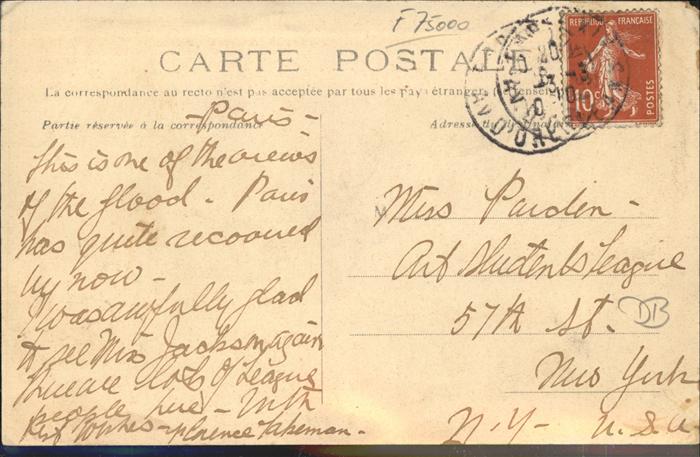 F 75000
CARTE POSTALE
La correspondance au recto n'est pas acceptée par tous les pays étrangers
Partie réservée à la correspondance
Adresse du
REPUBLIQUE FRANÇAISE
10c
POSTES
- Paris -
This is one of the views
of the flood - Paris
has quite recovered
by now -
I was awfully glad
to see Miss Jackson again
There are lots of League
people here - With
Best Wishes - Florence
Miss Parden -
Art Students League
57th St -
New York
N. Y - U. S. A
DB